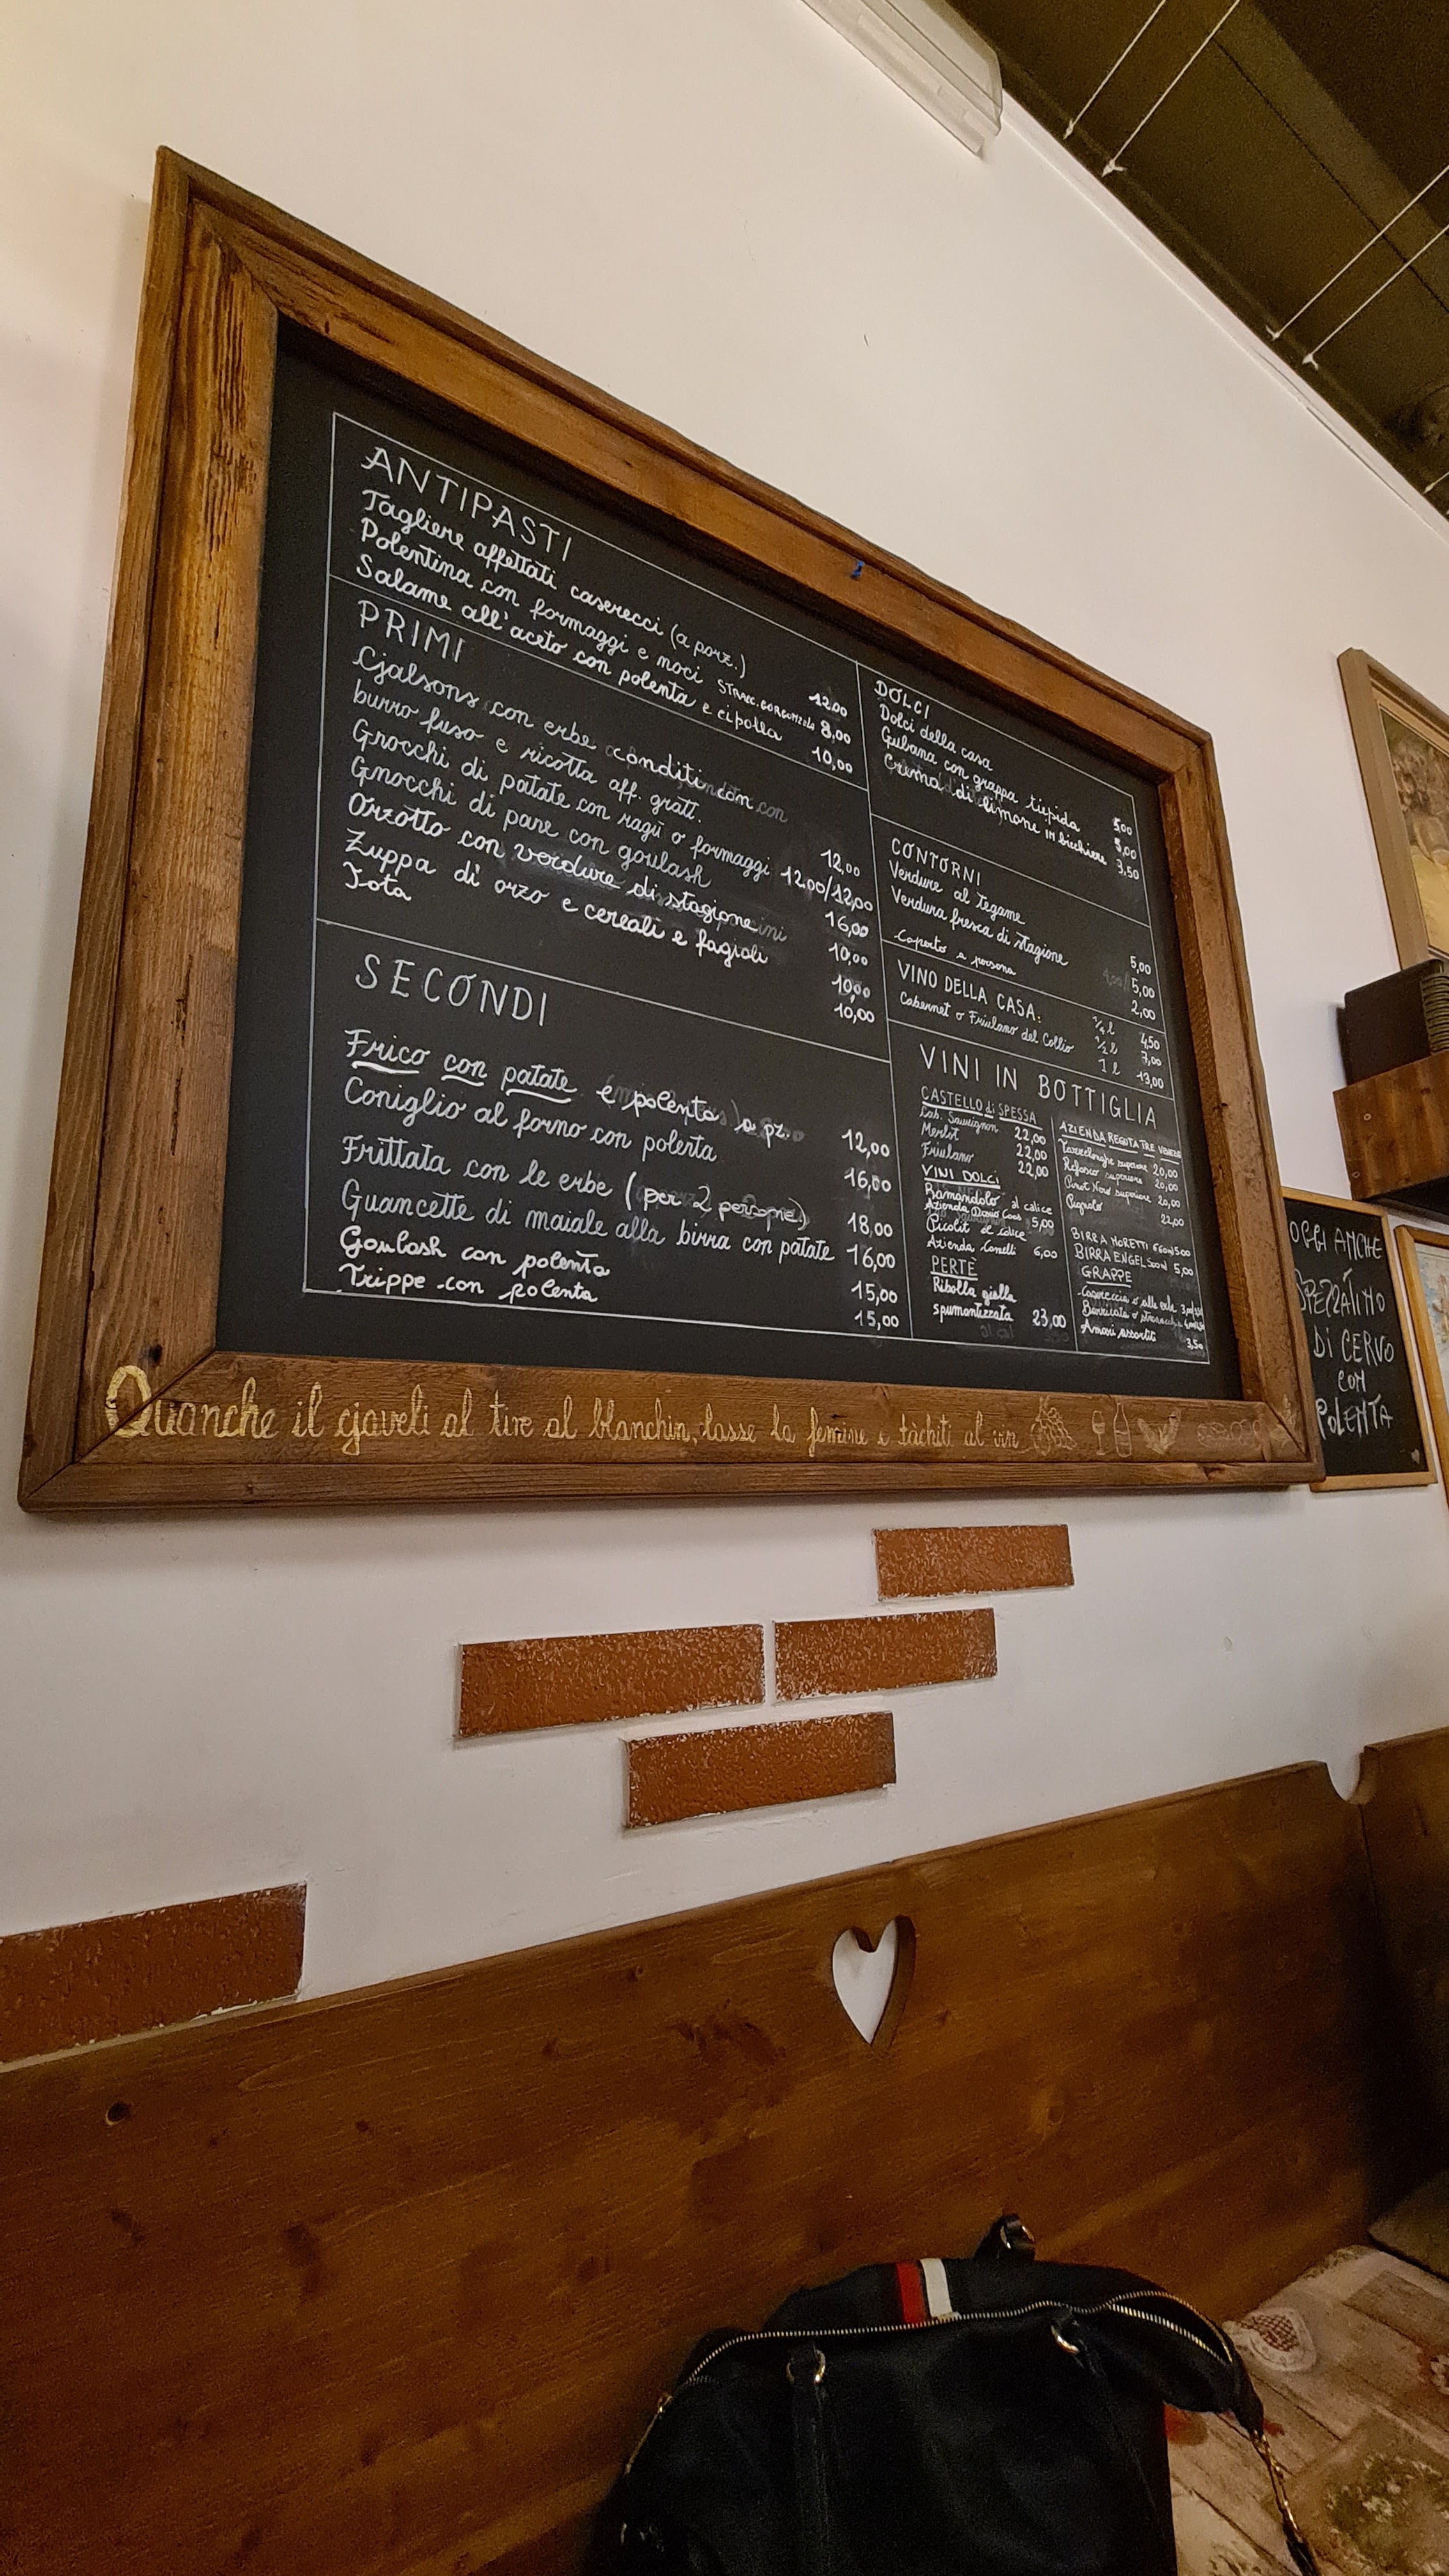 ANTIPASTI
Tagliere affettati caserecci (a porz.) 12,00
Polentina con formaggi e noci STRACC. GORGONZOLA 8,00
Salame all'aceto con polenta e cipolla 10,00
PRIMI
Cjalsons con erbe conditi con
burro fuso e ricotta aff. gratt. 12,00
Gnocchi di patate con ragù o formaggi 12,00/12,00
Gnocchi di pane con goulash 16,00
Orzotto con verdure di stagione 10,00
Zuppa di orzo e cereali e fagioli 10,00
Jota 10,00
SECONDI
Frico con patate e polenta a pz. 12,00
Coniglio al forno con polenta 16,00
Frittata con le erbe (per 2 persone) 18,00
Guancette di maiale alla birra con patate 16,00
Goulash con polenta 15,00
Trippe con polenta 15,00
DOLCI
Dolci della casa 5,00
Gubana con grappa tiepida 5,00
Crema di limone in bicchiere 3,50
CONTORNI
Verdure al tegame 5,00
Verdura fresca di stagione 5,00
Coperto a persona 2,00
VINO DELLA CASA:
Cabernet o Friulano del Collio
1/4 l 4,50
1/2 l 7,00
1 l 13,00
VINI IN BOTTIGLIA
CASTELLO di SPESSA
Cab. Sauvignon 22,00
Merlot 22,00
Friulano 22,00
VINI DOLCI
Ramandolo al calice
Azienda Dario Coos 5,00
Picolit al calice
Azienda Conelli 6,00
PERTÈ
Ribolla gialla
spumantizzata 23,00
AZIENDA REGUTA TRE VENEZIE
Tazzelenghe superiore 20,00
Refosco superiore 20,00
Pinot Nero superiore 20,00
Pignolo 22,00
BIRRA MORETTI 66cl 5,00
BIRRA ENGEL 50cl 5,00
GRAPPE
Casereccia o alle erbe
Barricata o
Amari assortiti 3,50
Quanche il cjaveli al tire al blanchin, lasse la femine e tàchiti al vin
OGGI ANCHE
SPEZZATINO
DI CERVO
CON
POLENTA